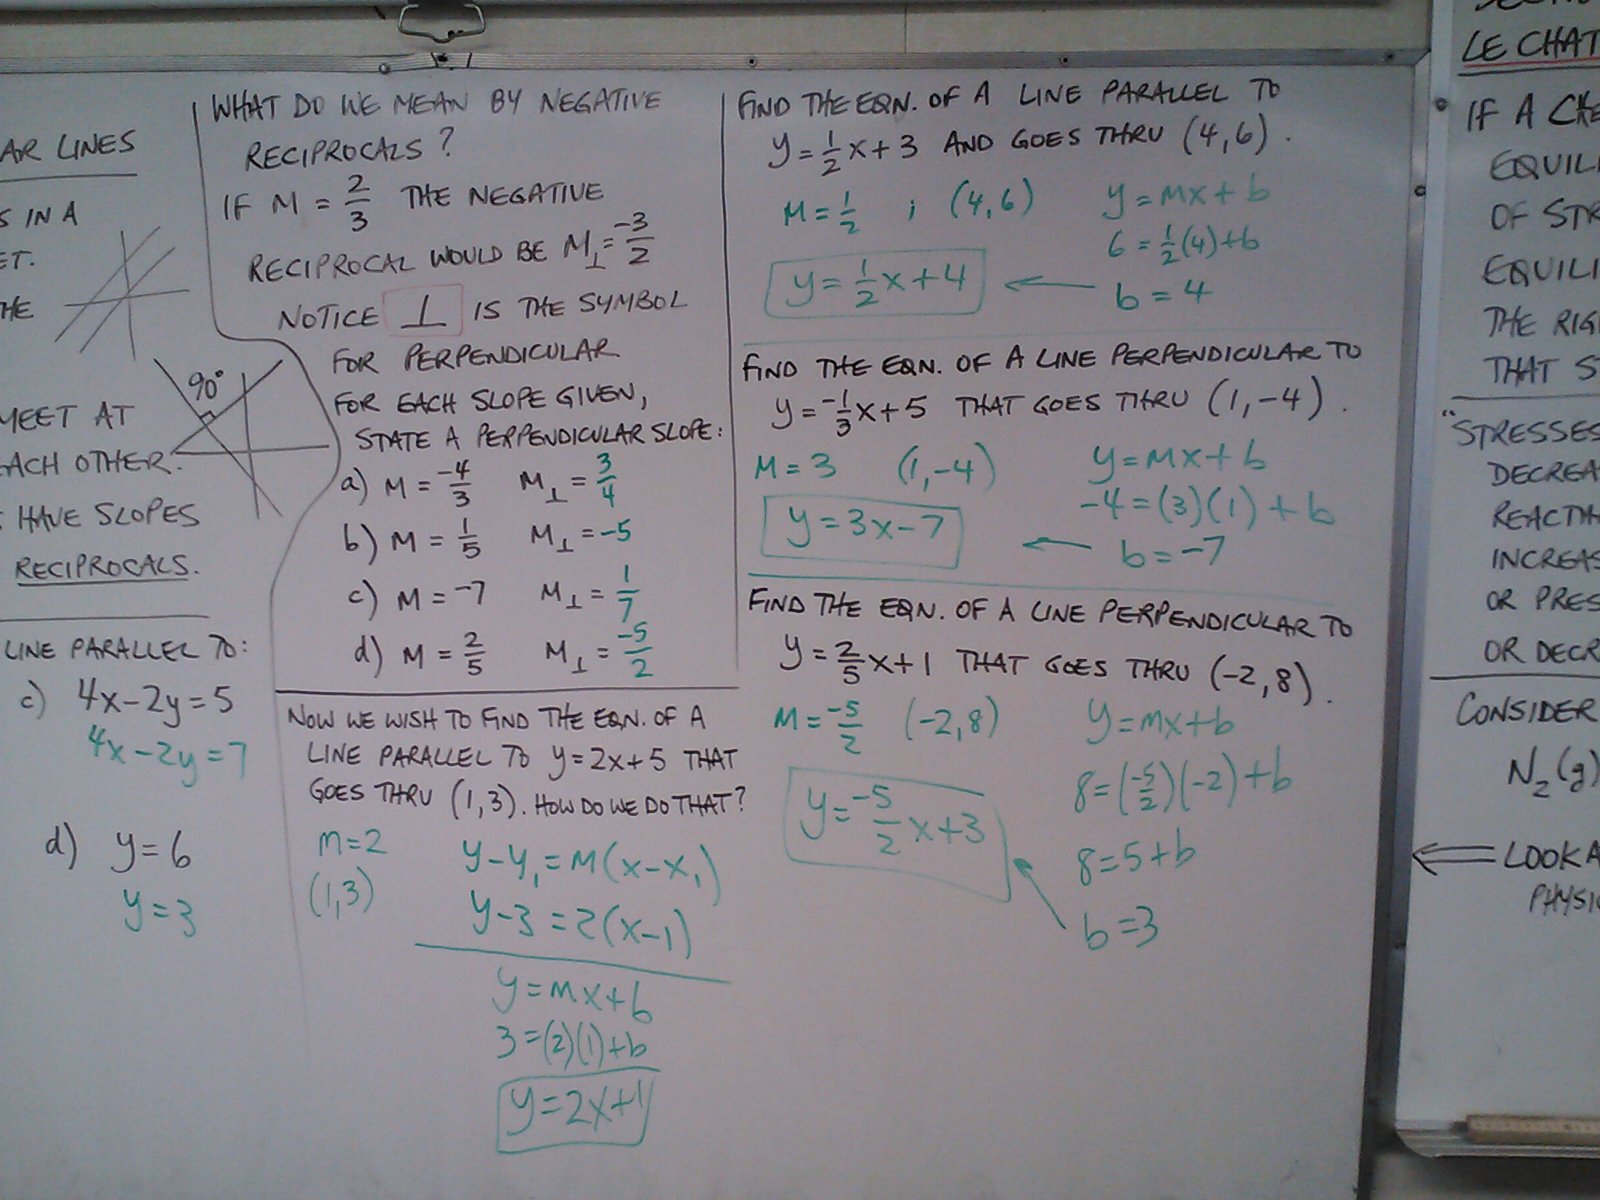 AR LINES
S IN A
ET.
HE
90°
MEET AT
EACH OTHER.
HAVE SLOPES
RECIPROCALS.
LINE PARALLEL TO:
c) 4x-2y=5
4x-2y=7
d) y=6
y=3
WHAT DO WE MEAN BY NEGATIVE
RECIPROCALS?
IF M = 2/3 THE NEGATIVE
RECIPROCAL WOULD BE M⊥ = -3/2
NOTICE ⊥ IS THE SYMBOL
FOR PERPENDICULAR
FOR EACH SLOPE GIVEN,
STATE A PERPENDICULAR SLOPE:
a) M = -4/3 M⊥ = 3/4
b) M = 1/5 M⊥ = -5
c) M = -7 M⊥ = 1/7
d) M = 2/5 M⊥ = -5/2
NOW WE WISH TO FIND THE EQN. OF A
LINE PARALLEL TO y=2x+5 THAT
GOES THRU (1,3). HOW DO WE DO THAT?
m=2
(1,3)
y-y₁=M(x-x₁)
y-3=2(x-1)
y=mx+b
3=(2)(1)+b
y=2x+1
FIND THE EQN. OF A LINE PARALLEL TO
y=1/2x+3 AND GOES THRU (4,6).
M=1/2 ; (4,6) y=mx+b
6=1/2(4)+b
y=1/2x+4 b=4
FIND THE EQN. OF A LINE PERPENDICULAR TO
y=-1/3x+5 THAT GOES THRU (1,-4).
M=3 (1,-4) y=mx+b
-4=(3)(1)+b
y=3x-7 b=-7
FIND THE EQN. OF A LINE PERPENDICULAR TO
y=2/5x+1 THAT GOES THRU (-2,8).
M=-5/2 (-2,8) y=mx+b
8=(-5/2)(-2)+b
y=-5/2x+3
8=5+b
b=3
LE CHAT
IF A CHE
EQUILI
OF STR
EQUILI
THE RIG
THAT S
"STRESSES
DECREA
REACTA
INCREAS
OR PRES
OR DECR
CONSIDER
N₂(g)
LOOK A
PHYSIC